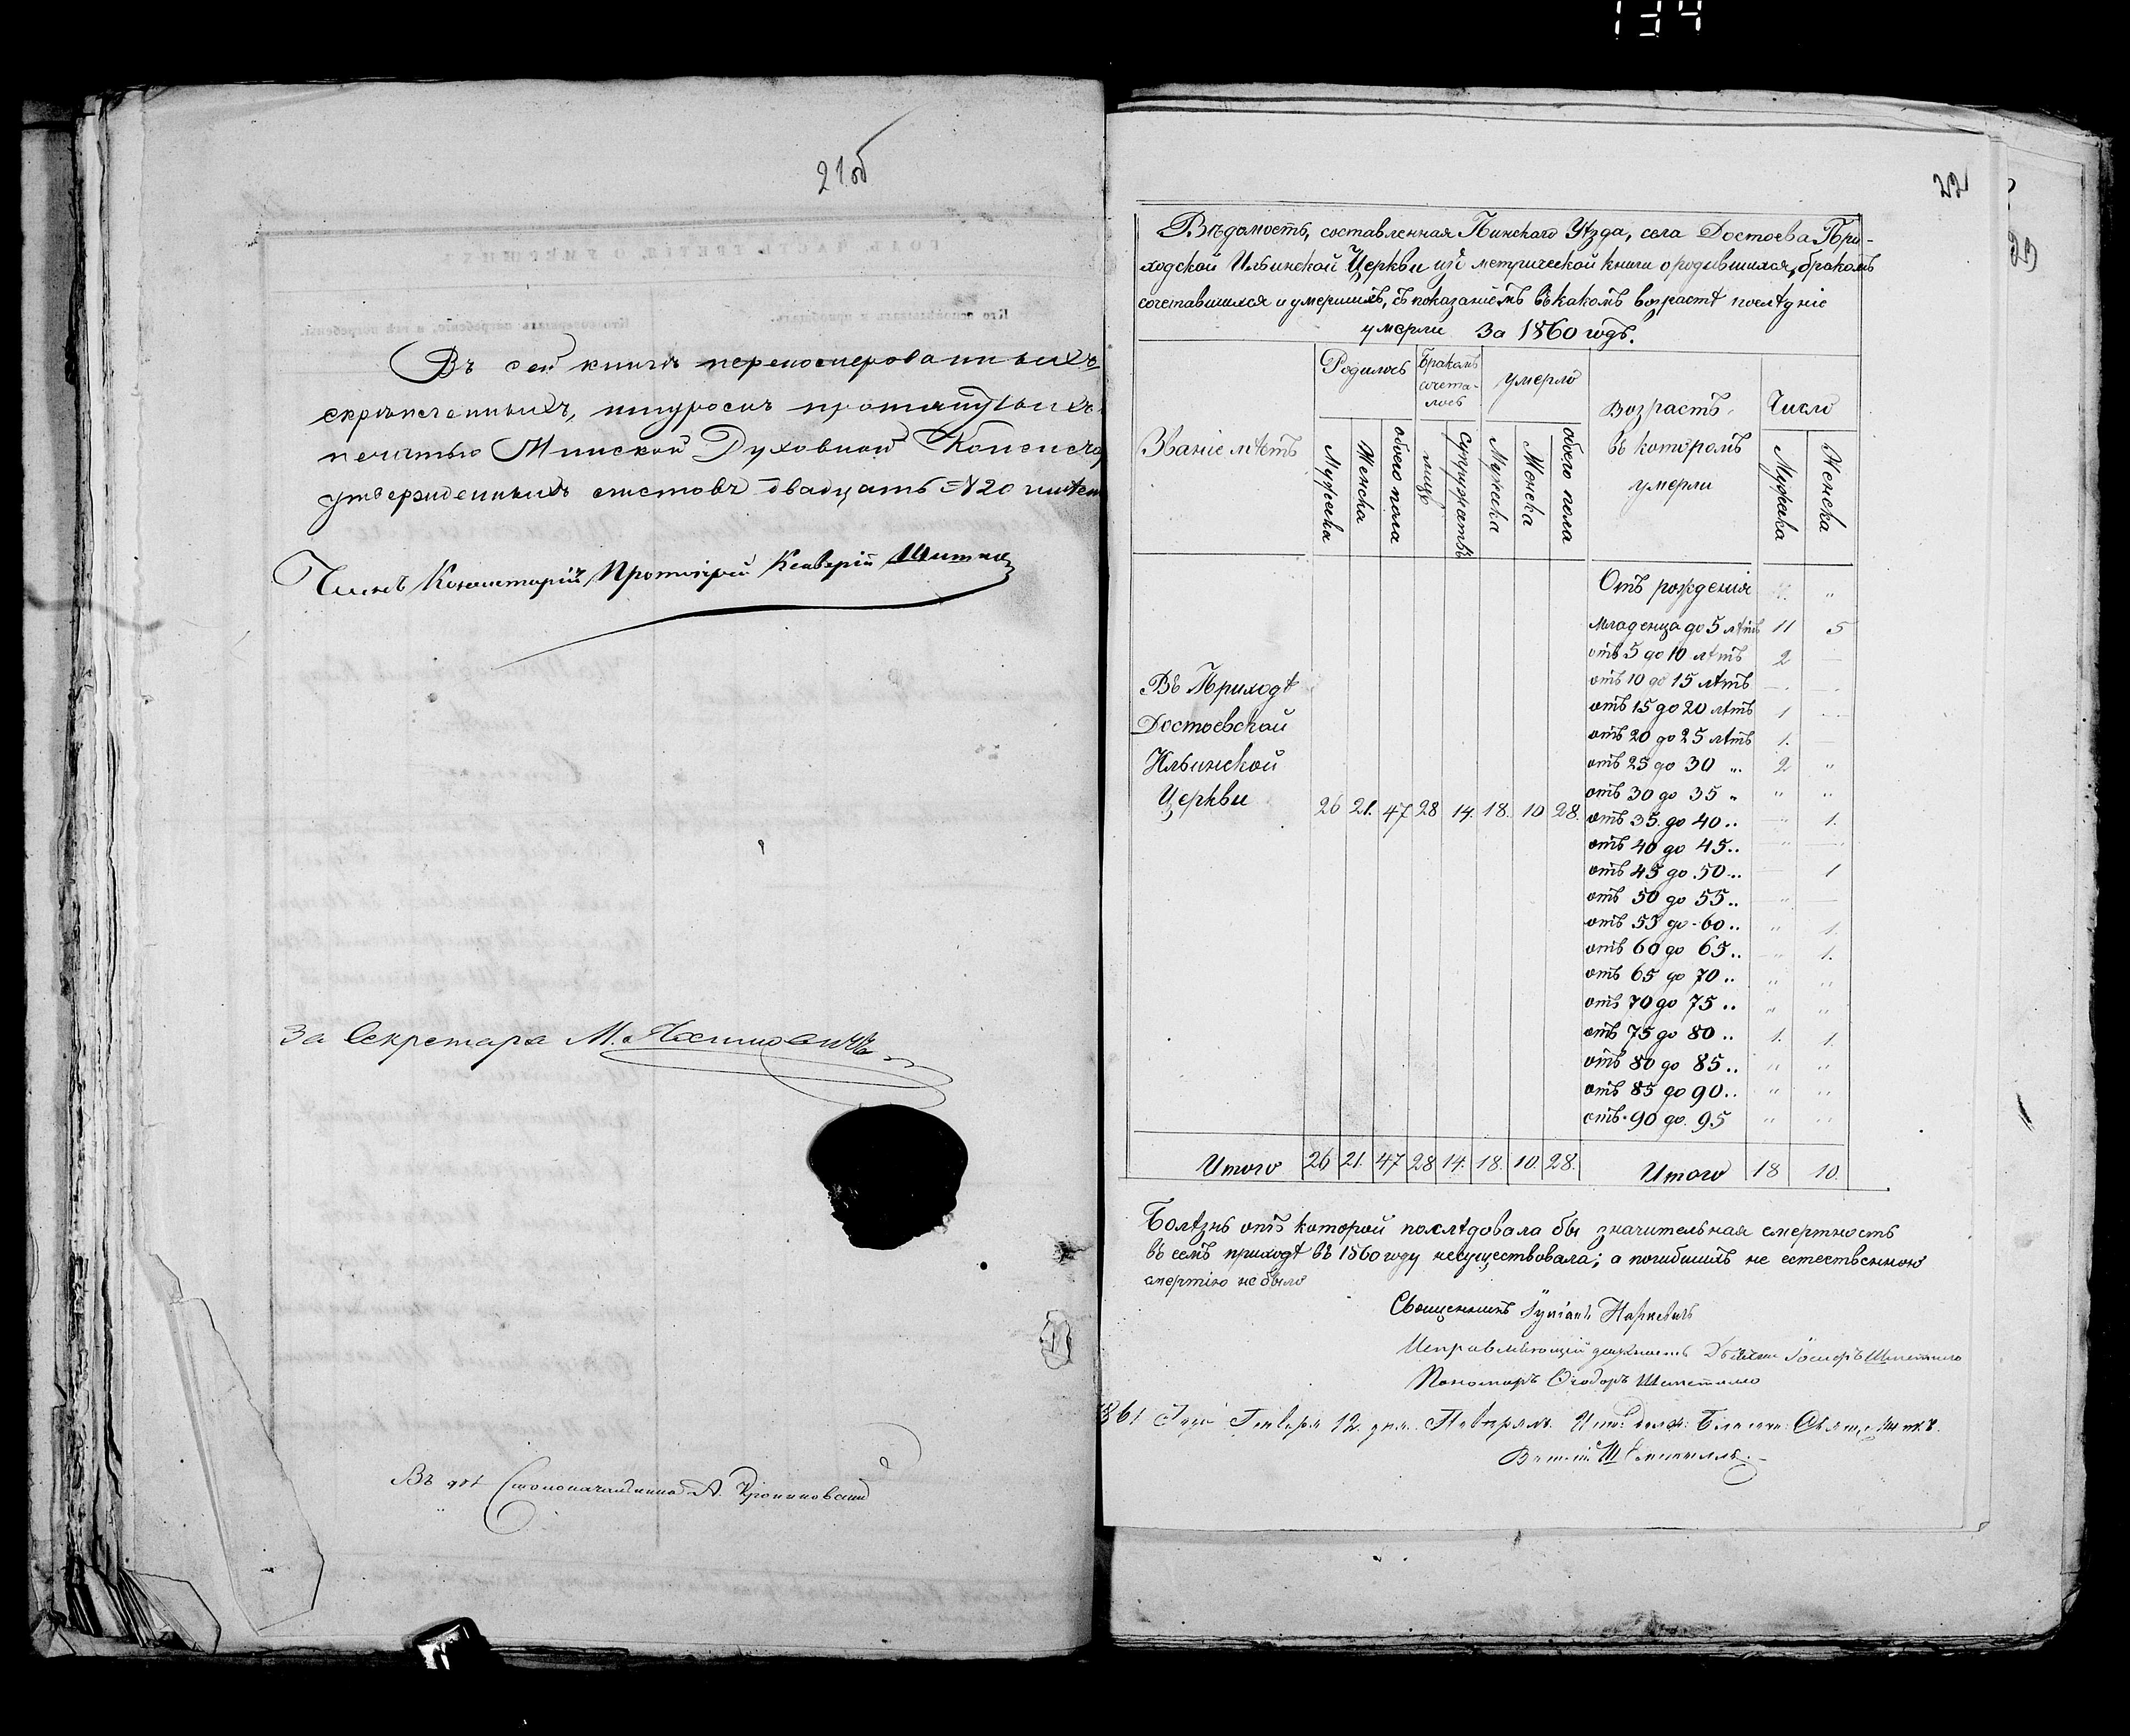 134
21об
Въ сей книгѣ перенумерованныхъ
скрѣпленныхъ, шнуромъ протянутыхъ
печатью Минской Духовной Консисто
утвержденныхъ листовъ двадцать =20
Членъ Консисторіи Протоіерей Ксаверій
За Секретара М.
Въ дѣл Столоначальника А.
22
Вѣдомость, составленная Пинскаго Уѣзда, села Достоева При-
ходской Ильинской Церкви изъ метрической книги о родившихся, бракомъ
сочетавшихся и умершихъ, съ показаніемъ въ какомъ возрастѣ послѣдніе
умерли За 1860 годъ.
Званіе мѣстъ
Родилось
Бракомъ
сочета-
лось
умерло
Возрастъ
въ которомъ
умерли
Число
Мужска Женска обоего пола лицъ супружествъ Мужска Женска обоего пола Мужска Женска
Отъ рождения " "
Младенца до 5 лѣтъ 11 5
отъ 5 до 10 лѣтъ 2 —
отъ 10 до 15 лѣтъ — —
отъ 15 до 20 лѣтъ 1 —
отъ 20 до 25 лѣтъ 1. —
отъ 25 до 30 " 2 "
отъ 30 до 35 " " "
отъ 35 до 40 " " 1.
отъ 40 до 45 " " "
отъ 45 до 50 " — 1
отъ 50 до 55 " " —
отъ 55 до 60 " " 1.
отъ 60 до 65 " " 1.
отъ 65 до 70 " " "
отъ 70 до 75 " " "
отъ 75 до 80 " 1. 1.
отъ 80 до 85 " " "
отъ 85 до 90 " " "
отъ 90 до 95 " "
Въ Приходѣ
Достоевской
Ильинской
Церкви 26 21. 47 28 14. 18. 10 28.
Итого 26 21. 47 28 14. 18. 10. 28. Итого 18 10.
Болѣзнь отъ которой послѣдовала бы значительная смертность
въ семъ приходѣ въ 1860 году несуществовала; а погибшихъ не естественною
смертію не было
Священникъ Іуліанъ Наркевичъ
Исправляющій должность Дьячка Іосифъ
Пономарь Ѳеодоръ
1861 года Генваря 12 дня